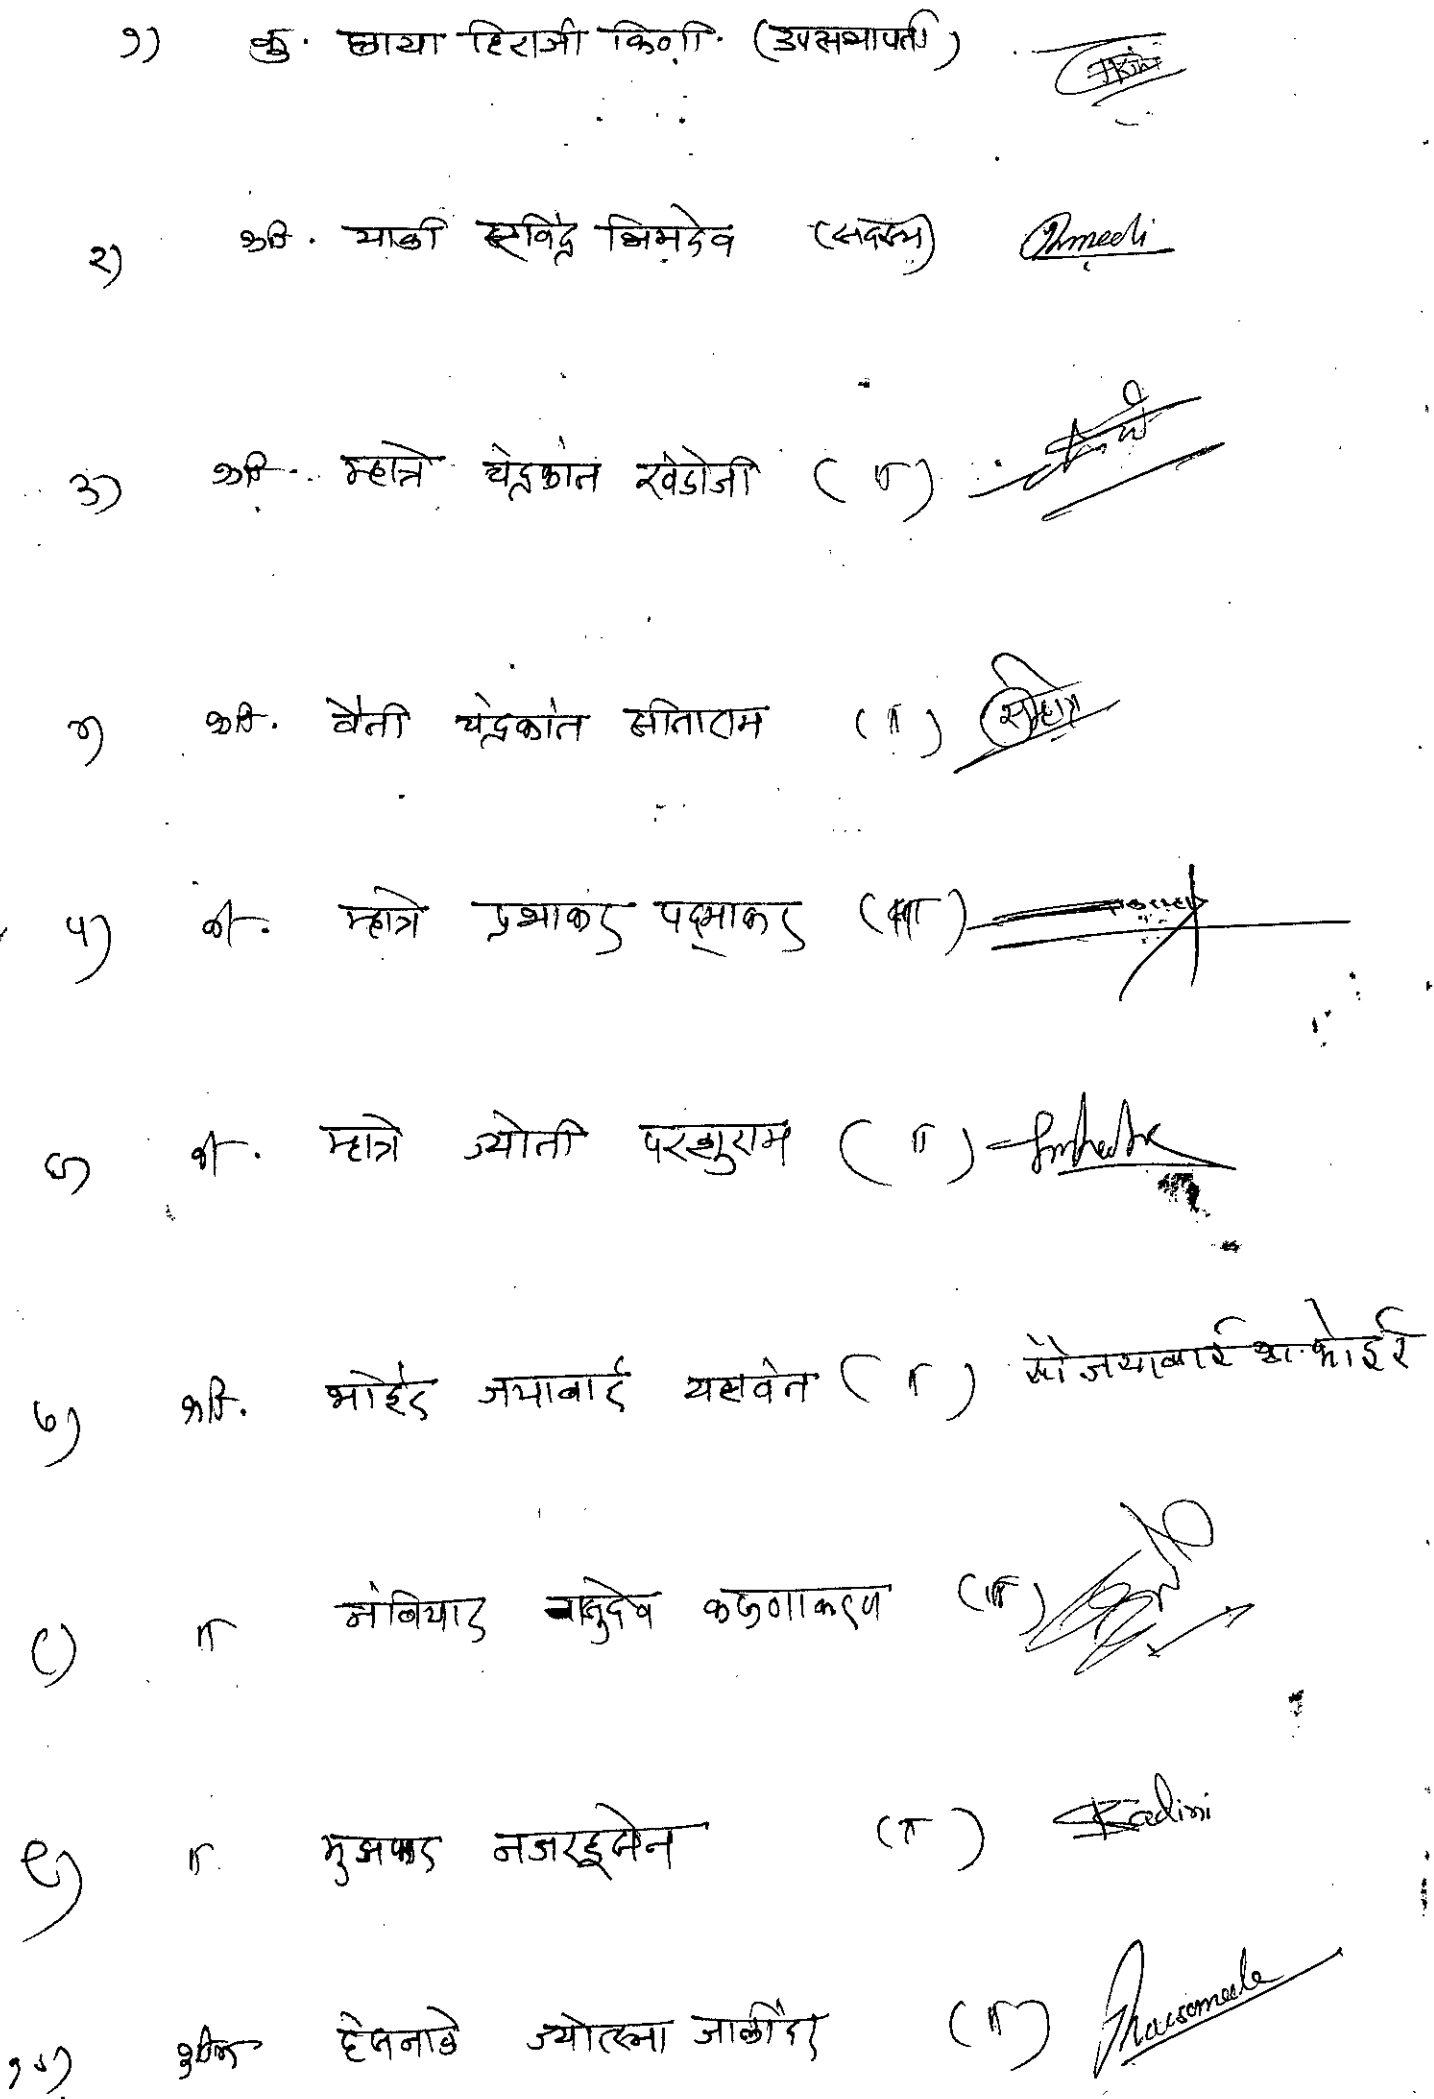 १) कु. छाया हिराजी किणी. (उपसभापती)
२) श्री. माळी रविंद्र भिमदेव (सदस्य)
३) श्री. म्हात्रे चंद्रकांत खंडोजी ( " )
४) श्री. वैती चंद्रकांत सीताराम ( " )
५) श्री. म्हात्रे प्रभाकर पद्माकर ( " )
६) श्री. म्हात्रे ज्योती परशुराम ( " )
७) श्री. भोईर जयाबाई यशवंत ( " ) सौ जयाबाई य. भोईर
८) " नंबियार वासुदेव करुणाकरण ( " )
९) " मुझफ्फर नजरहूसेन ( " ) Kadiri
१०) ज्योत्स्ना जालींदर ( " )